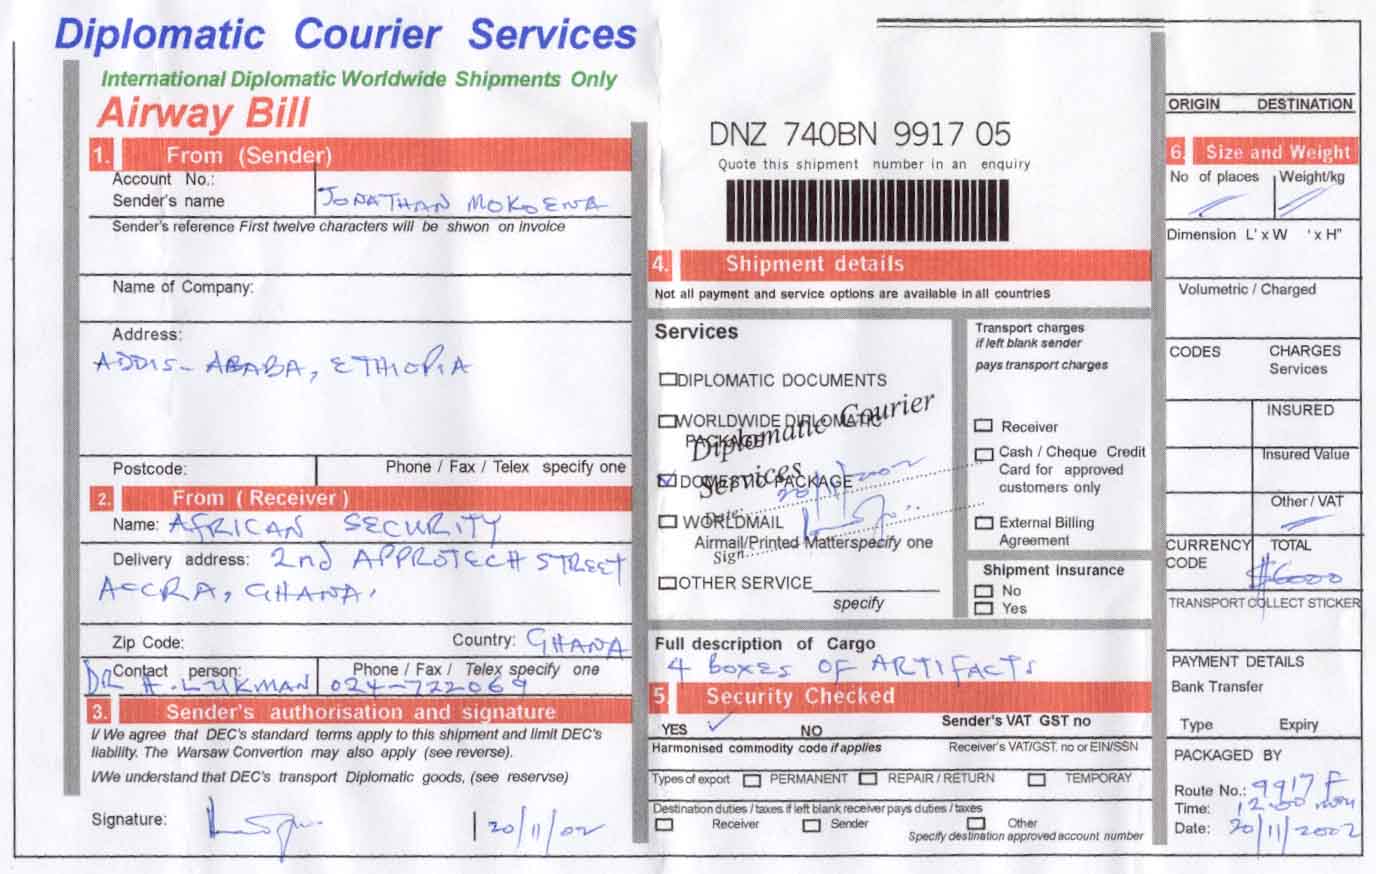 Diplomatic Courier Services
International Diplomatic Worldwide Shipments Only
Airway Bill
1. From (Sender)
Account No.:
Sender's name JONATHAN MOKOENA
Sender's reference First twelve characters will be shwon on invoice
Name of Company:
Address:
ADDIS-ABABA, ETHIOPIA
Postcode: Phone / Fax / Telex specify one
2. From ( Receiver )
Name: AFRICAN SECURITY
Delivery address: 2nd APPROTECH STREET
ACCRA, GHANA.
Zip Code: Country: GHANA
Contact person: Phone / Fax / Telex specify one
DR H. LUKMAN 024-722069
3. Sender's authorisation and signature
I/ We agree that DEC's standard terms apply to this shipment and limit DEC's
liability. The Warsaw Convertion may also apply (see reverse).
I/We understand that DEC's transport Diplomatic goods, (see reservse)
Signature: 20/11/02
DNZ 740BN 9917 05
Quote this shipment number in an enquiry
4. Shipment details
Not all payment and service options are available in all countries
Services
DIPLOMATIC DOCUMENTS
WORLDWIDE DIPLOMATIC
PACKAGE
DOMESTIC PACKAGE
WORLDMAIL
Airmail/Printed Matter specify one
OTHER SERVICE
specify
Diplomatic Courier
Services
Date: 20/11/2002
Sign
Transport charges
if left blank sender
pays transport charges
Receiver
Cash / Cheque Credit
Card for approved
customers only
External Billing
Agreement
Shipment insurance
No
Yes
Full description of Cargo
4 BOXES OF ARTIFACTS
5. Security Checked
YES NO Sender's VAT GST no
Harmonised commodity code if applies Receiver's VAT/GST. no or EIN/SSN
Types of export PERMANENT REPAIR / RETURN TEMPORAY
Destination duties / taxes if left blank receiver pays duties / taxes
Receiver Sender Other
Specify destination approved account number
ORIGIN DESTINATION
6. Size and Weight
No of places Weight/kg
Dimension L' x W ' x H"
Volumetric / Charged
CODES CHARGES
Services
INSURED
Insured Value
Other / VAT
CURRENCY TOTAL
CODE $6000
TRANSPORT COLLECT STICKER
PAYMENT DETAILS
Bank Transfer
Type Expiry
PACKAGED BY
Route No.: 9917F
Time: 12.00
Date: 20/11/2002